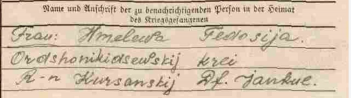 Name und Anschrift der zu benachrichtigenden Person in der Heimat
des Kriegsgefangenen
Frau: Hmelewa Fedosija.
Ordshonikidsewskij krei
R-n Kursanskij Df. Jankul.